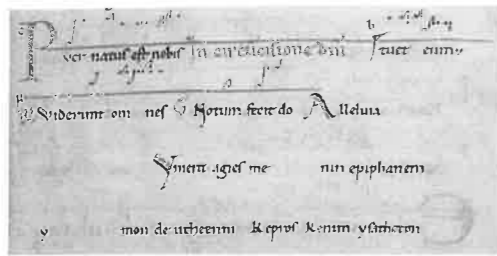 Puer natus est nobis In circūcisione dn̄i Tuet eum
Viderunt om nes Notum fecit do Alleluia
Ymeru agies me nin epiphanem
y mon de utheemi kepros kenim ysathoron